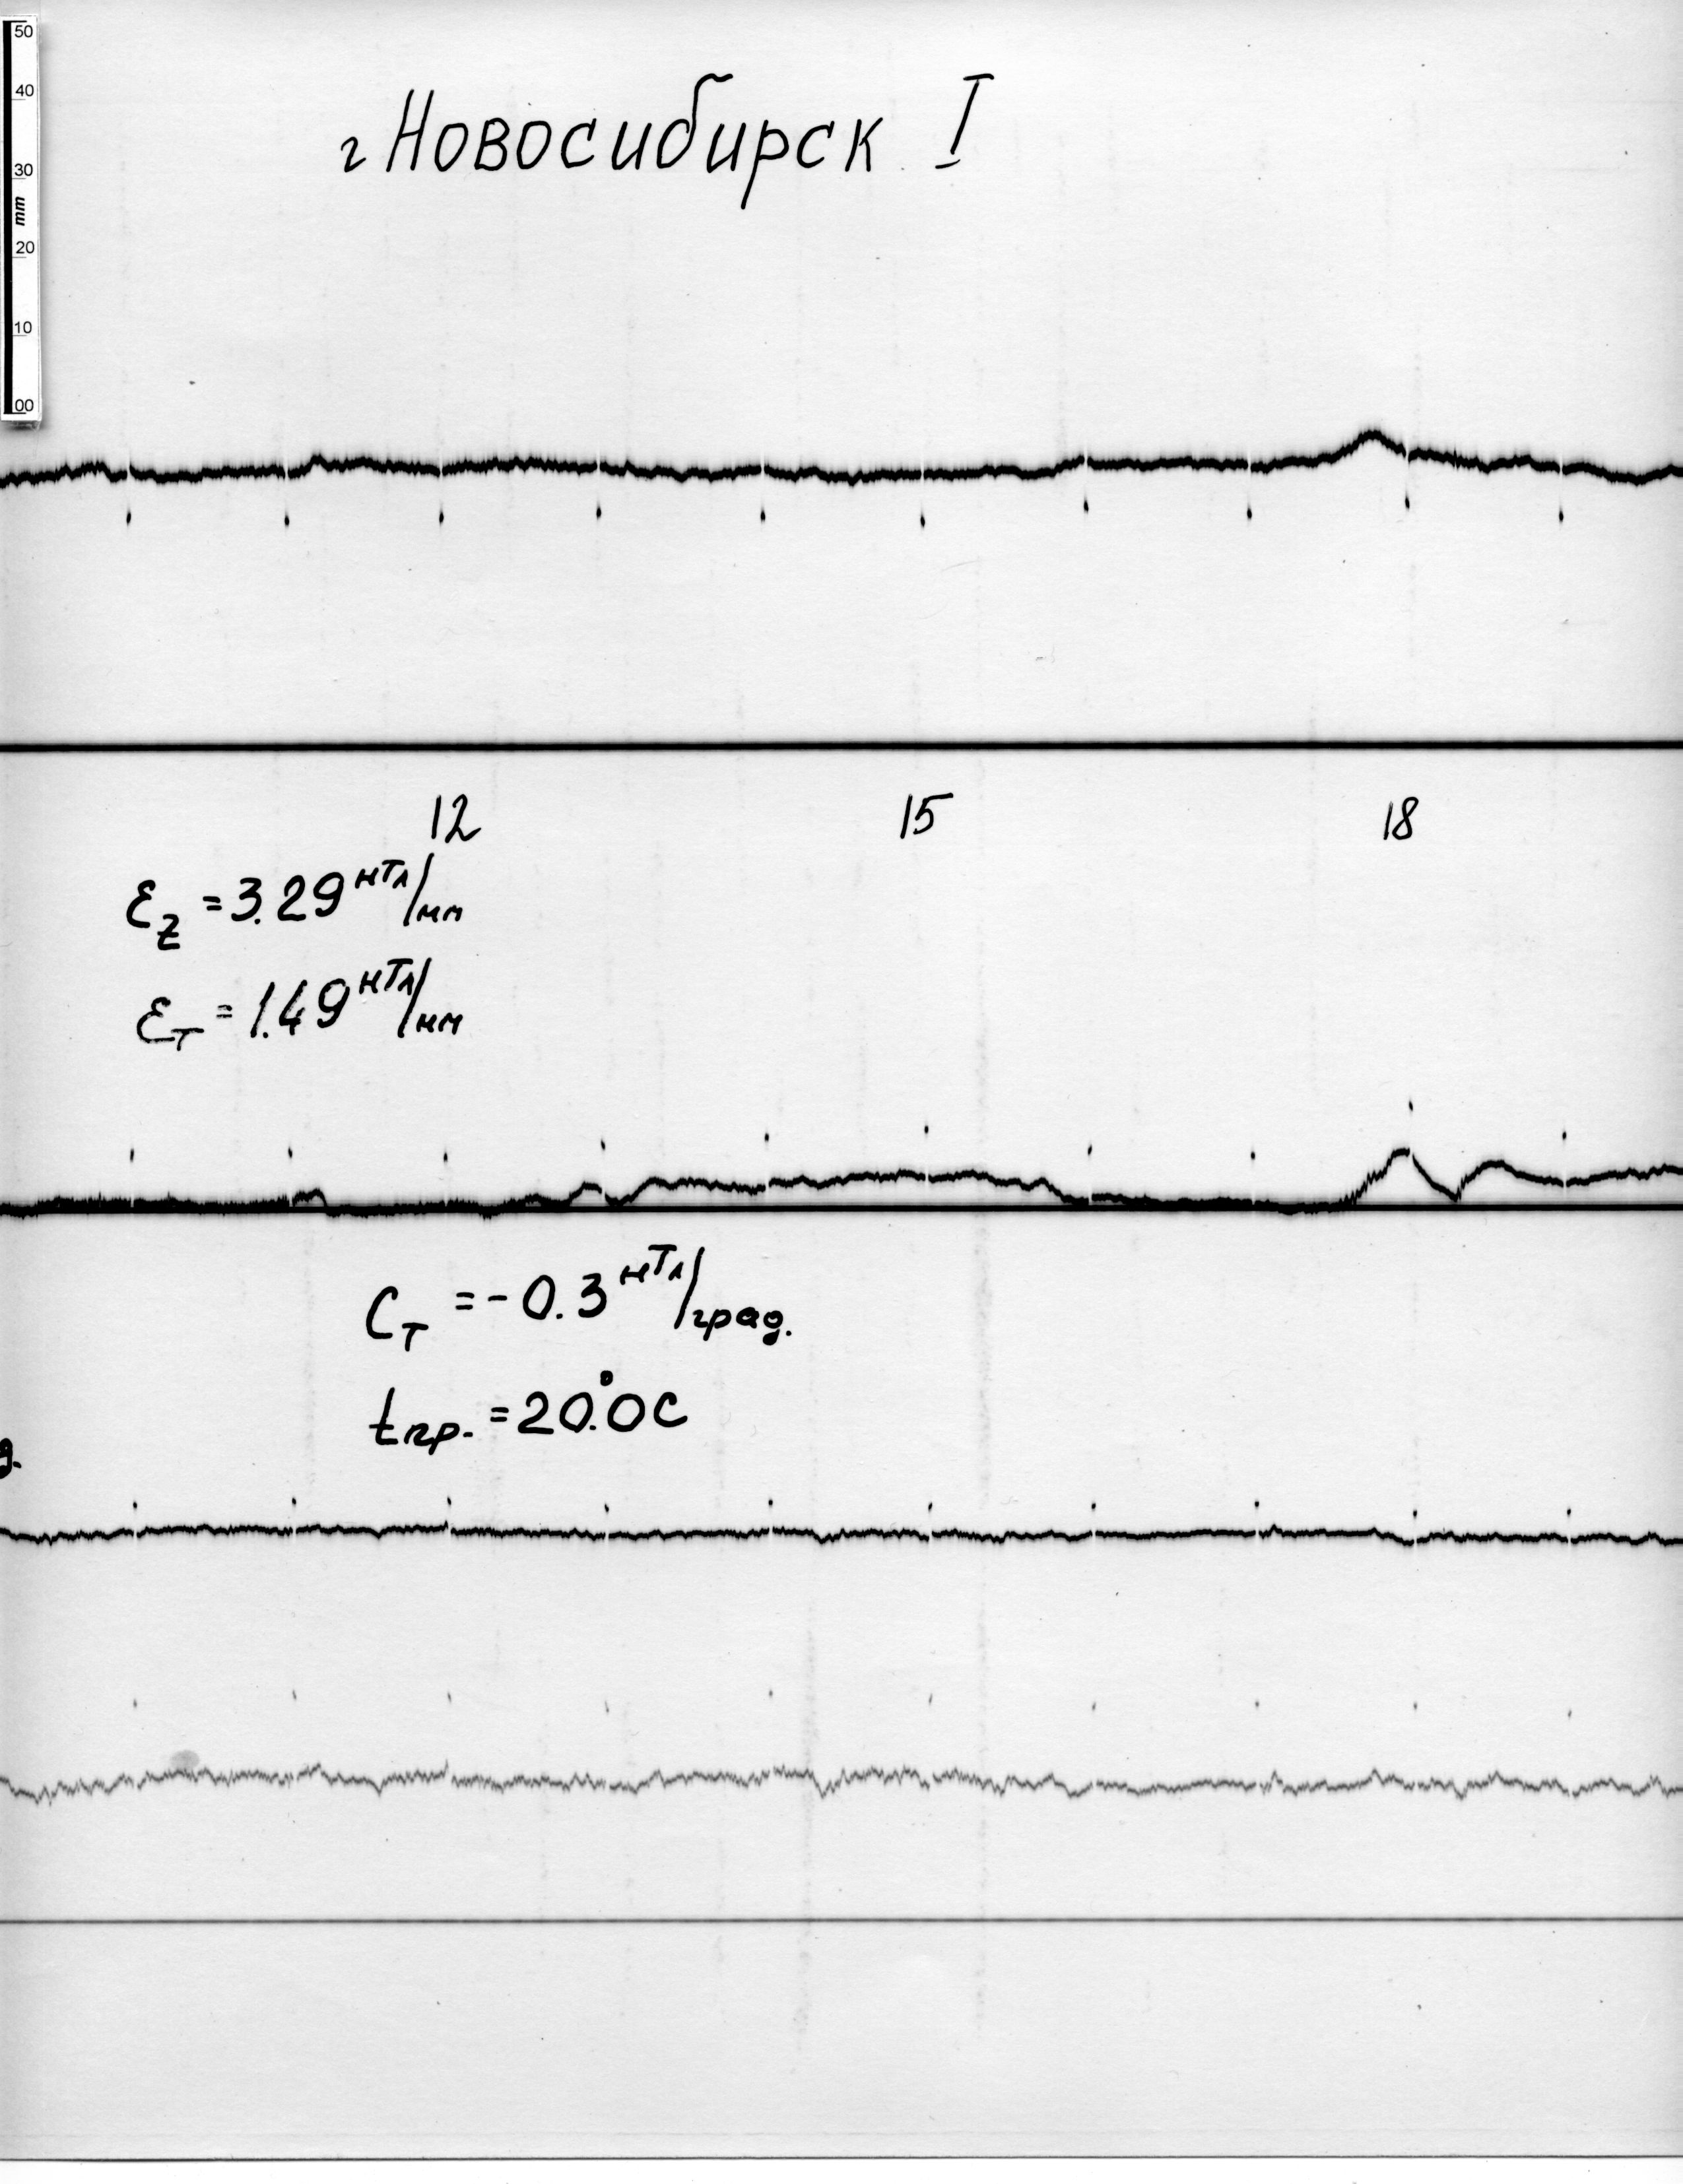 50
40
30
mm
20
10
00
г Новосибирск I
12 15 18
Ez = 3.29 нТл/мм
ET = 1.49 нТл/мм
CT = -0.3 нТл/град.
tпр. = 20.°0C